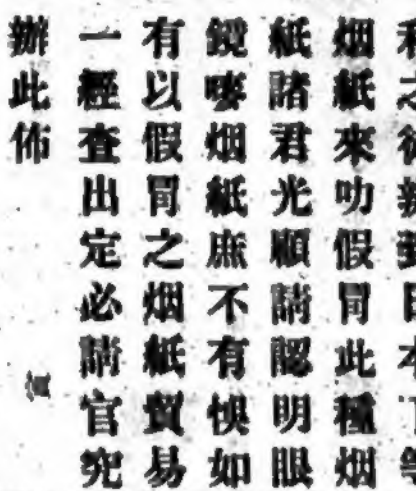 利之日本下等
烟紙來叻假冒此種烟
紙諸君光顧請認明眼
鏡嘜烟紙庶不有悞如
有以假冒之烟紙貿易
一經查出定必請官究
辦此佈